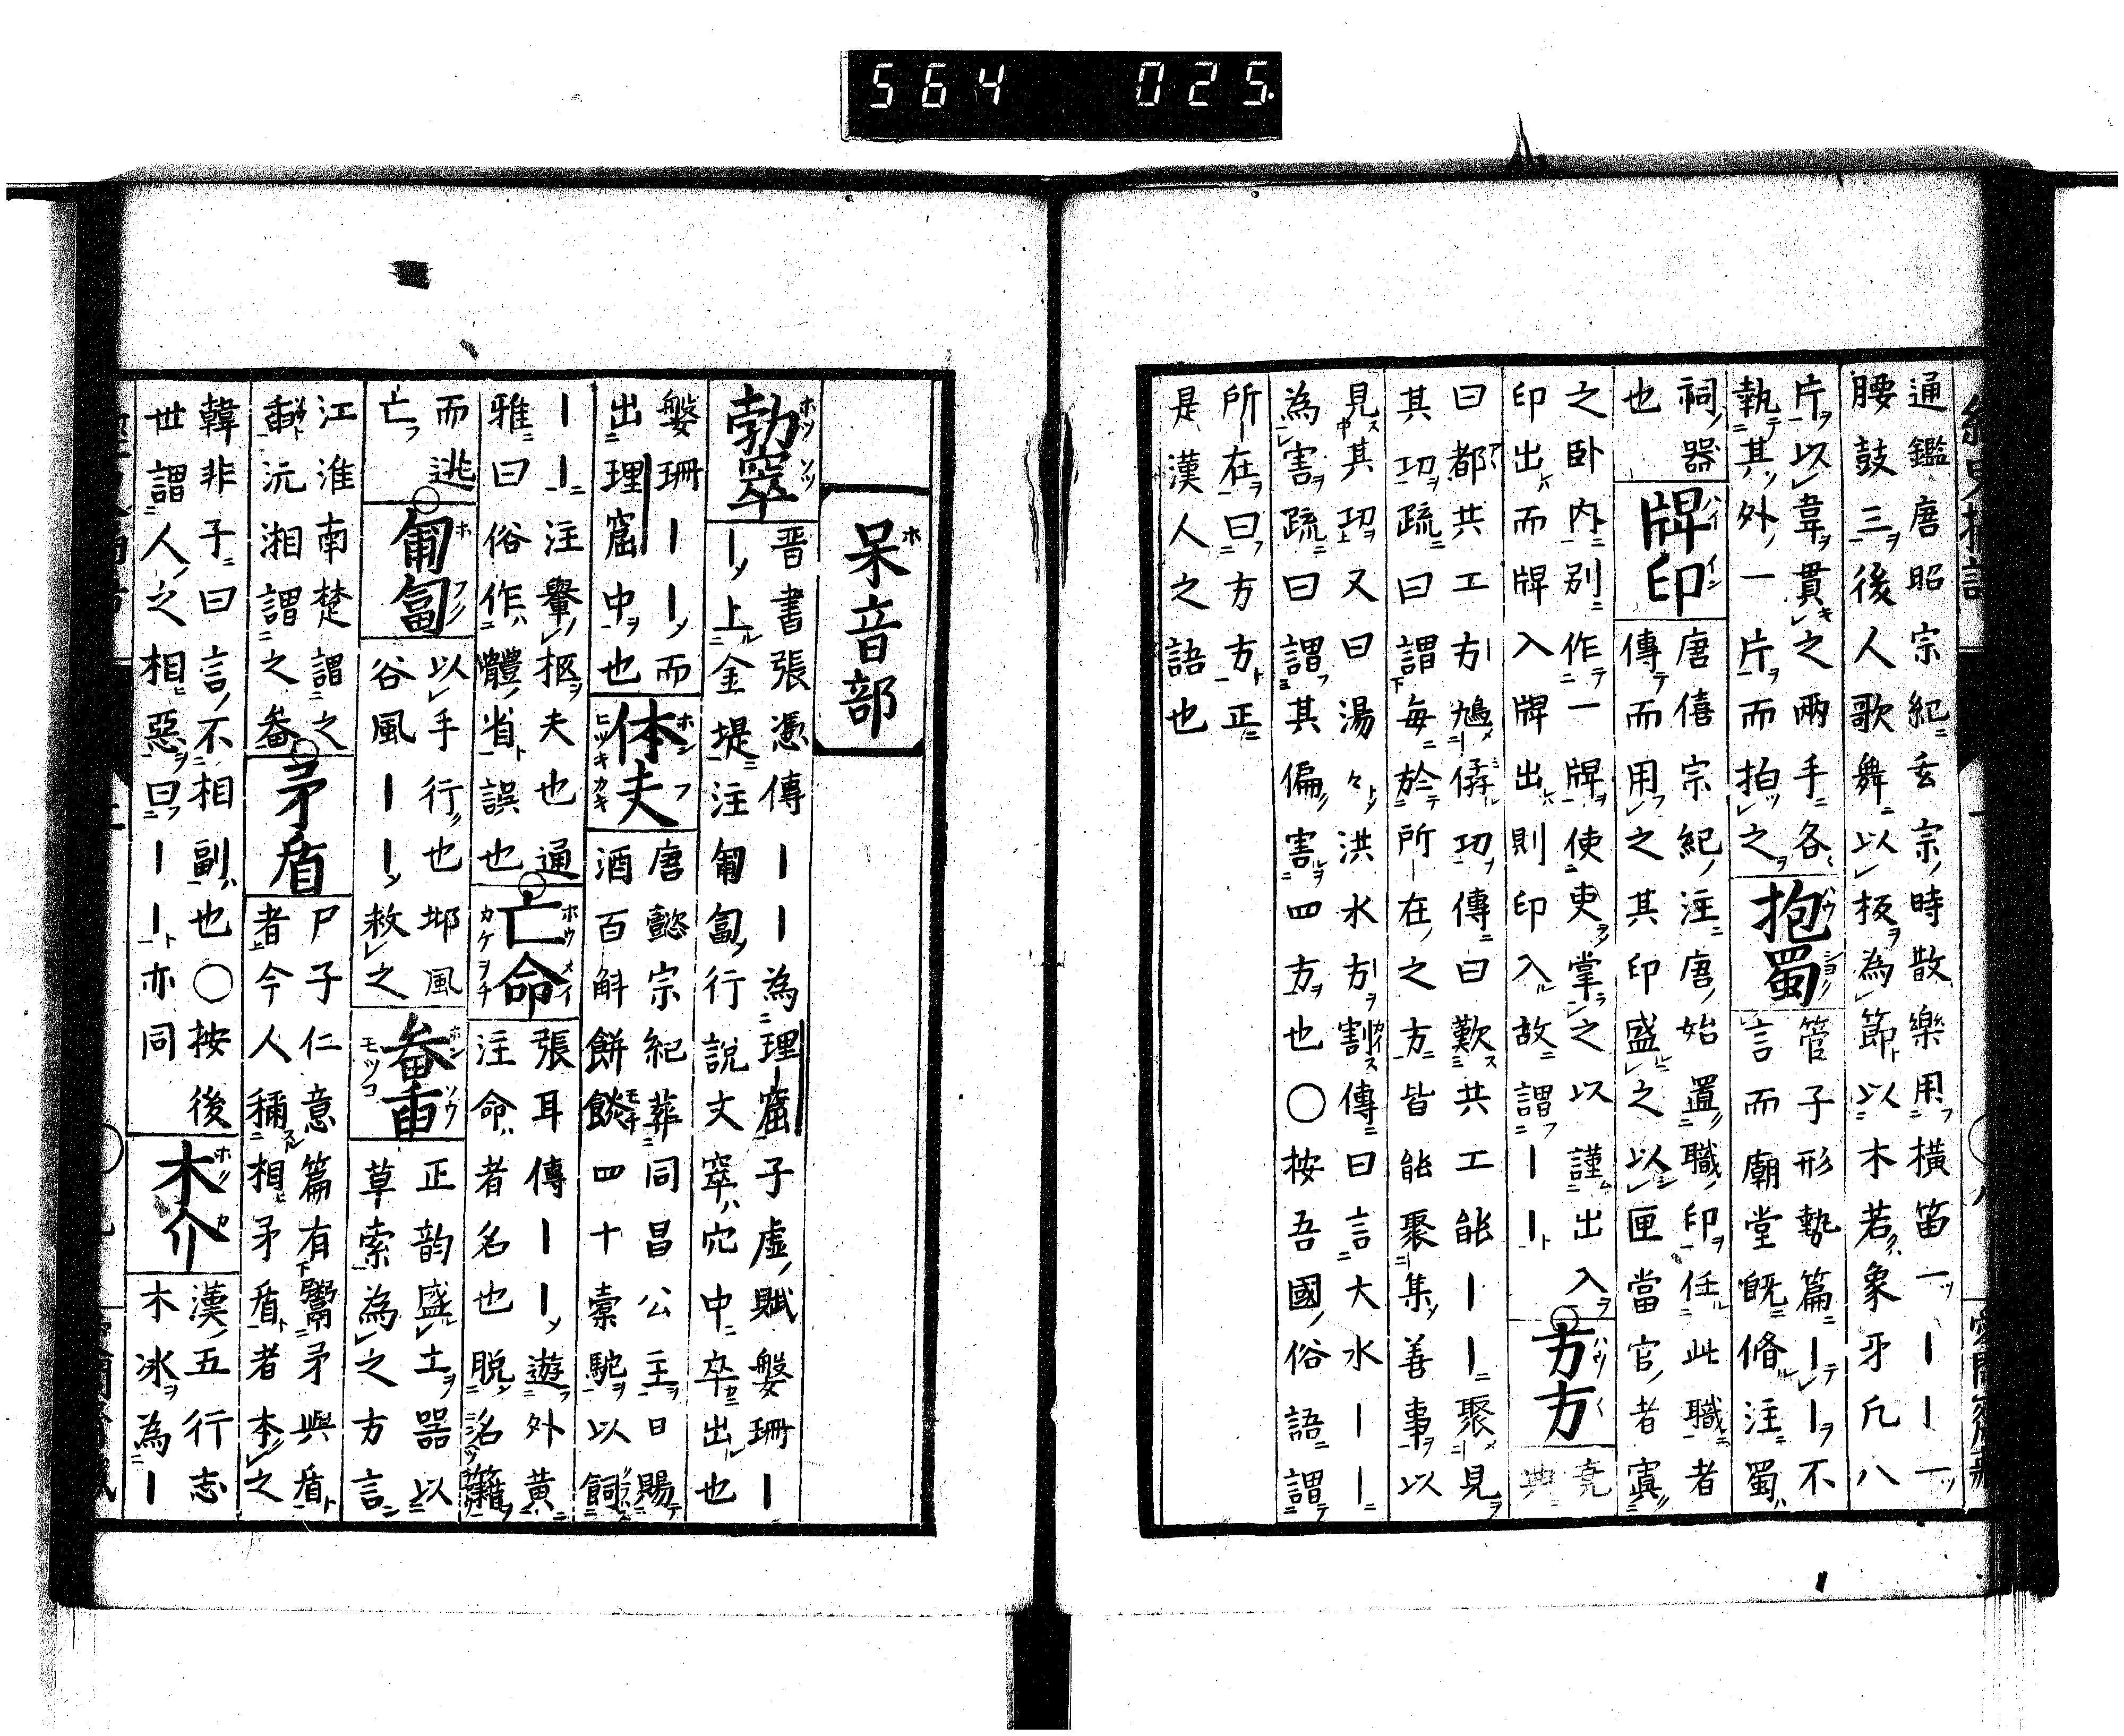 564 025
通鑑唐昭宗紀玄宗時散樂用橫笛一丨丨一
腰鼓三後人歌舞以板為節以木若象牙凢八
片以韋貫之兩手各
執其外一片而拍之
抱蜀
管子形勢篇丨丨不
言而廟堂既脩注蜀
祠器
也
牌印
唐僖宗紀注唐始置職印任此職者
傳而用之其印盛之以匣當官者寘
之卧内别作一牌使吏掌之以謹出入
印出而牌入牌出則印入故謂丨丨
方方
堯
典
曰都共工方鳩僝功傳曰歎共工能丨丨聚見
其功疏曰謂每於所在之方皆能聚集善事以
見其功又曰湯々洪水方割傳曰言大水丨丨
為害疏曰謂其偏害四方也〇按吾國俗語謂
所在曰方方正
是漢人之語也
呆音部
勃窣
晋書張憑傳丨丨為理窟子虚賦媻珊丨
丨上金堤注匍匐行說文窣穴中卒出也
媻珊丨丨而
出理窟中也
体夫
唐懿宗紀葬同昌公主日賜
酒百斛餅餤四十橐駝以飼
丨丨注轝柩夫也通
雅曰俗作體省誤也
亡命
張耳傳丨丨遊外黄
注命者名也脱名籍
而逃
亡
匍匐
以手行也邶風
谷風丨丨救之
畚重
正韵盛土器以
草索為之方言
江淮南楚謂之
臿沅湘謂之畚
矛盾
尸子仁意篇有鬻矛與盾
者今人稱相矛盾者本之
韓非子曰言不相副也〇按後
世謂人之相惡曰丨丨亦同
木介
漢五行志
木冰為丨